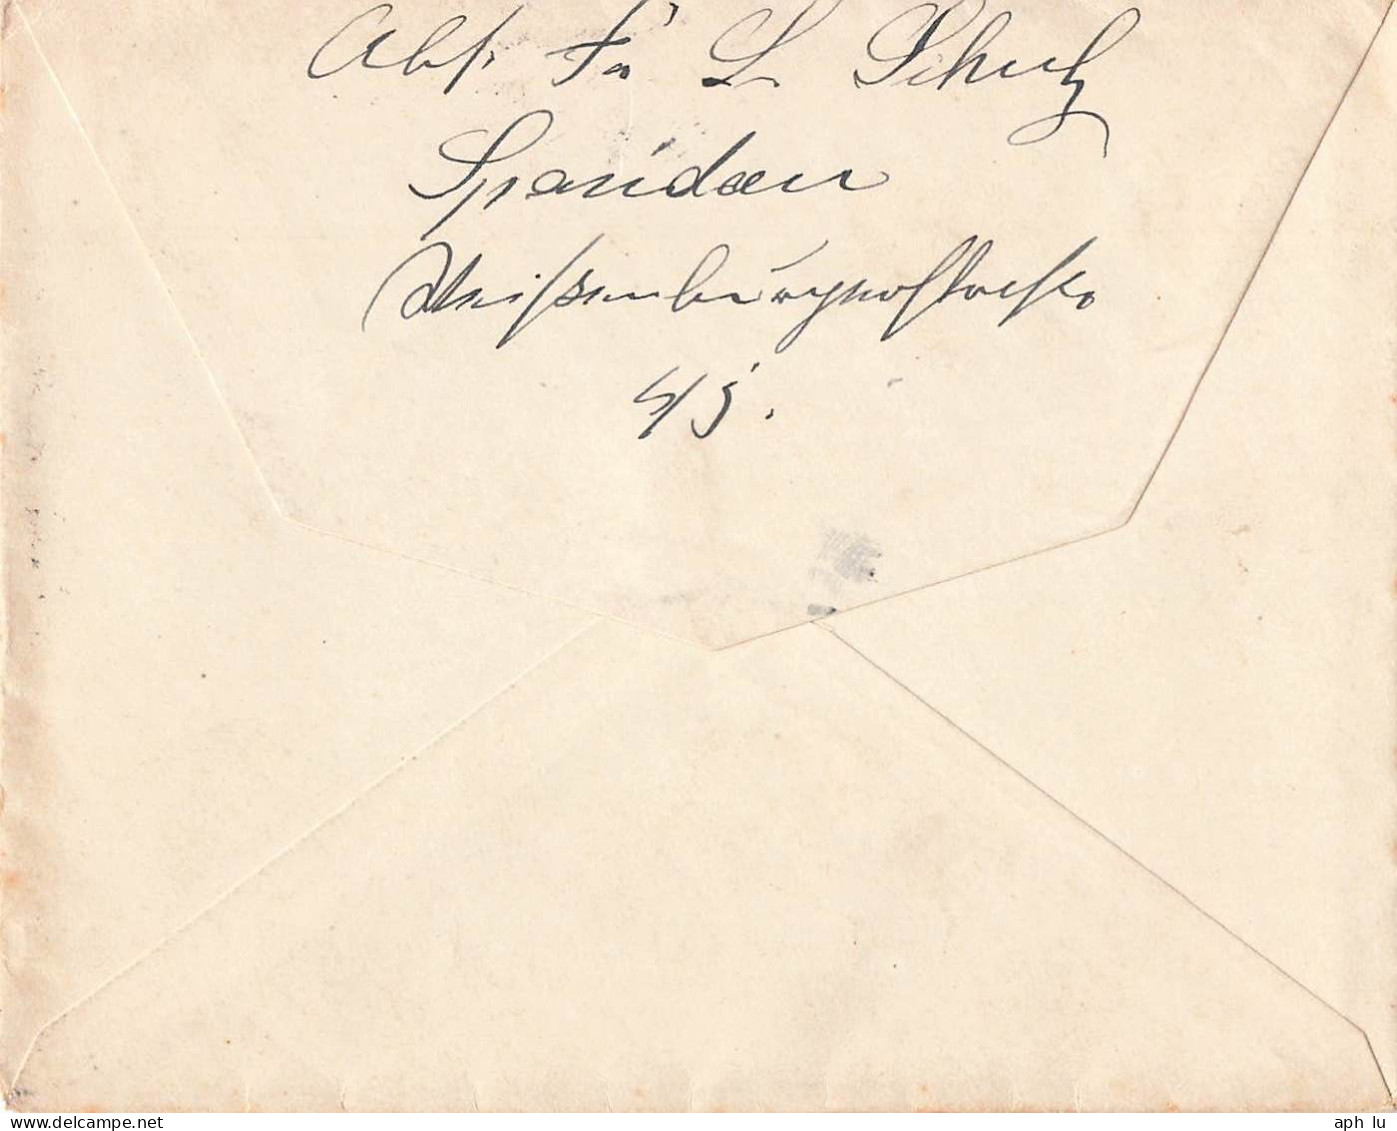 Abs. Fa L. Schulz
Spandau
Weißenburgerstraße
45.
www.delcampe.net
aph lu